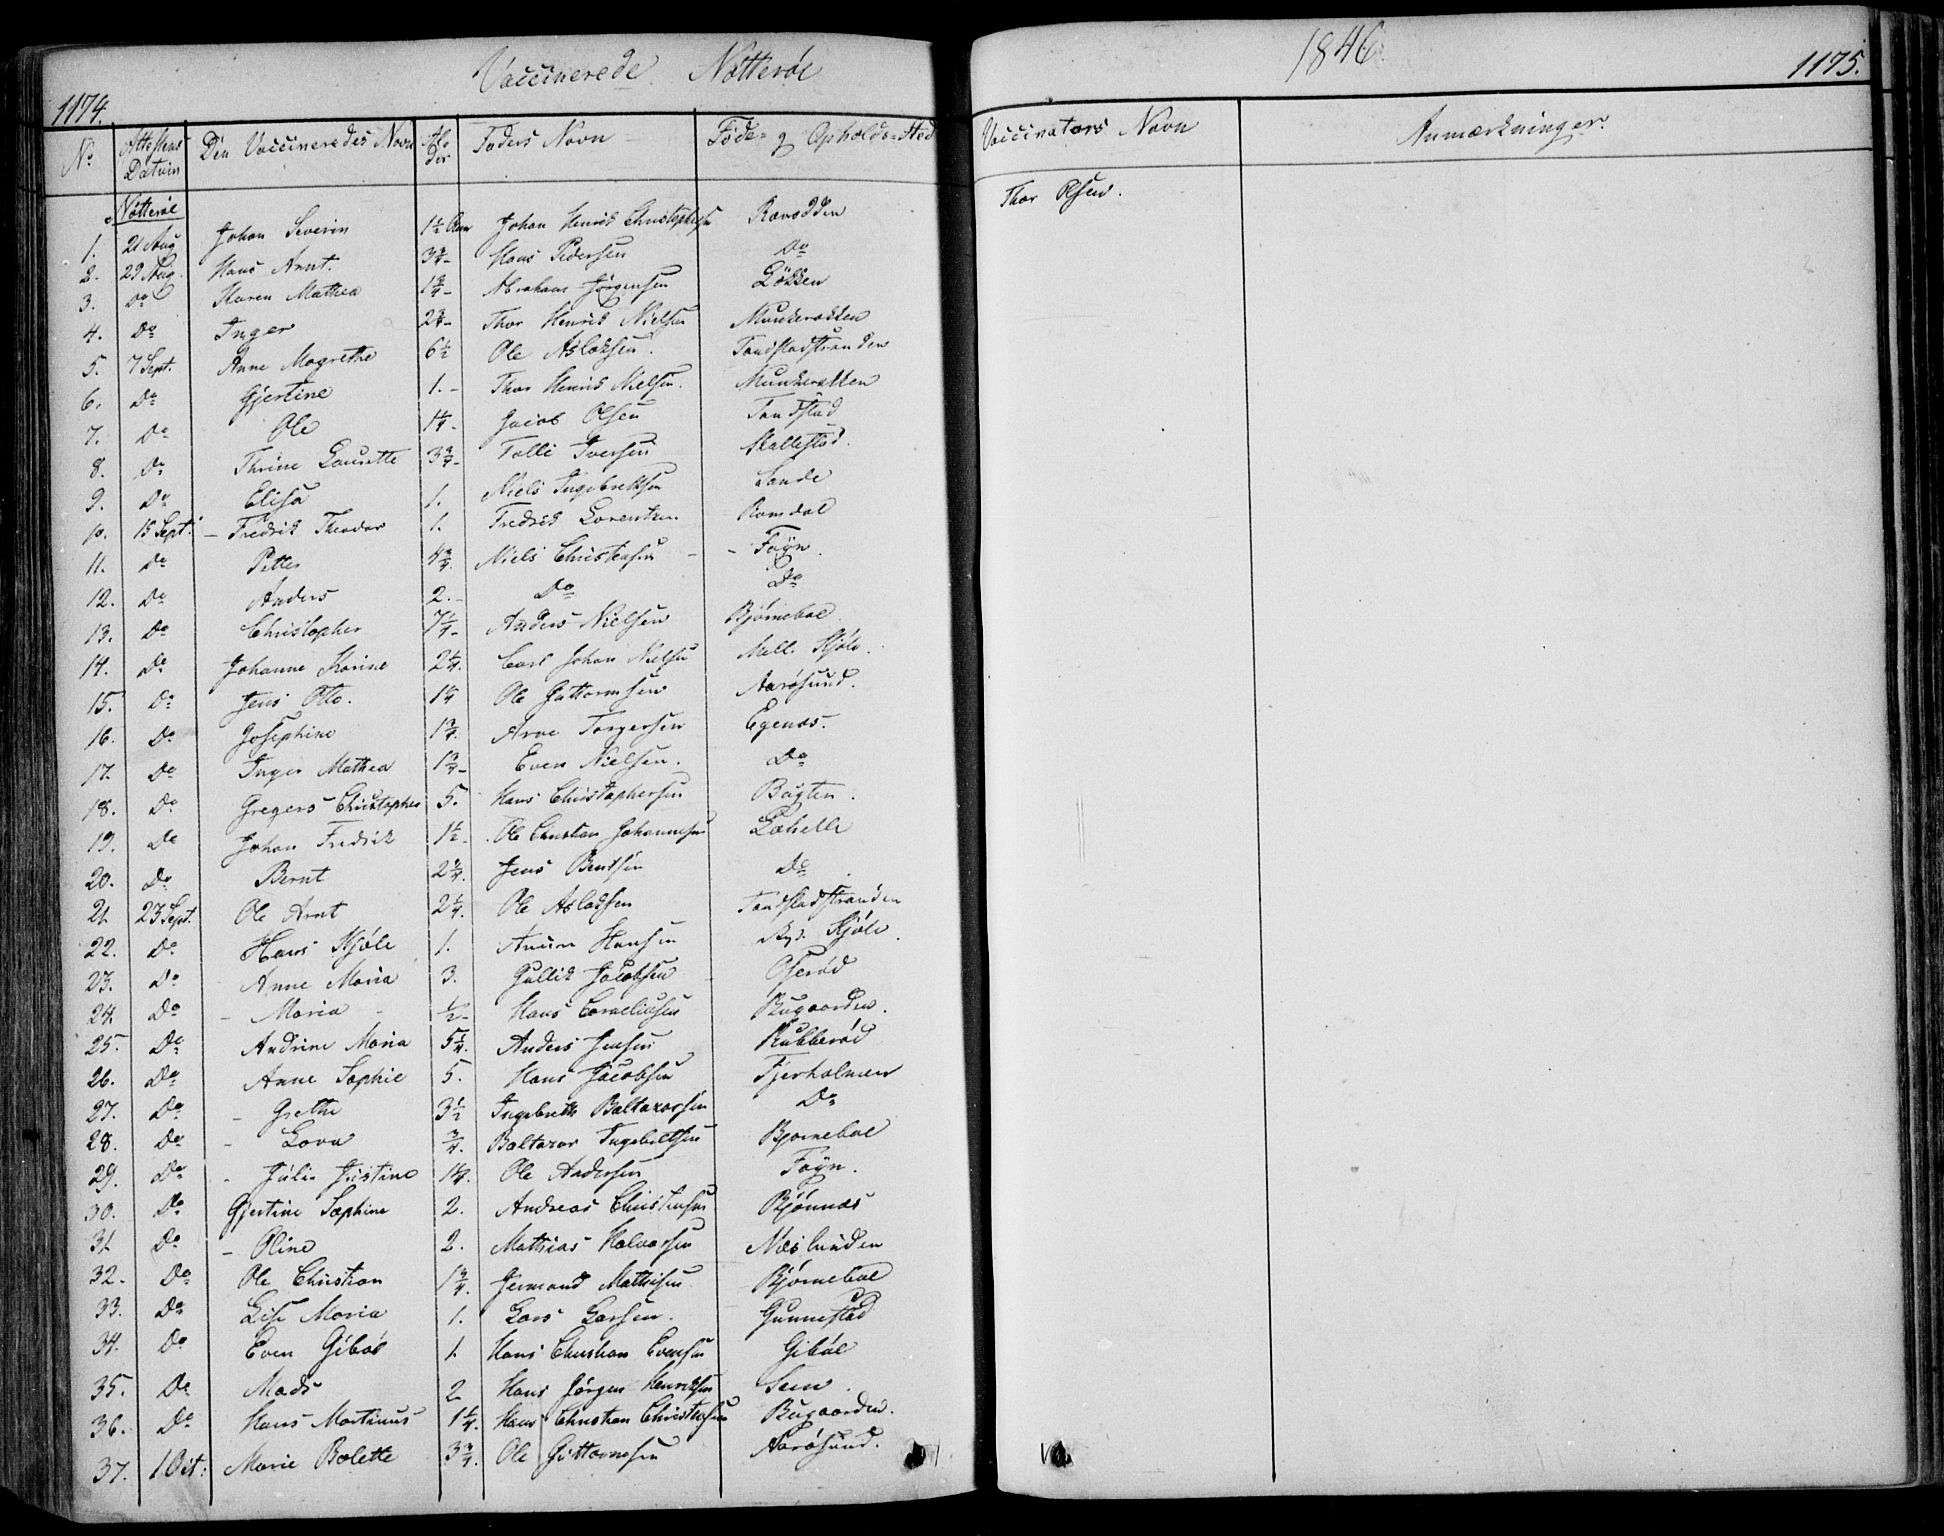 Vaccinerede Nøtterøe
1846.
1174.
1175.
No. Attestens Datum Den Vaccineredes Navn Alder Faders Navn Føde- og Opholds-Sted Vaccinators Navn Anmærkninger.
Nøtterøe
1. 21 Aug Johan Severin 1½ Aar Johan Henrik Christophersen Ravnodden Thor Olsen.
2. 29 Aug. Hans Arnt. 3¾- Hans Pedersen Do
3. Do Karen Mathea 1¾- Abraham Jørgensen Løkken
4. Do Inger 2¾- Thor Henrik Nielsen Munkerekken
5. 7 Sept. Anne Magrethe 6½ Ole Aslaksen. Tandstadstranden
6. Do Gjertine 1.- Thor Henrik Nielsen. Munkerekken
7. Do Ole 1¼- Jacob Olsen Tandstad
8. Do Thrine Laurette 3¾- Tolli Iversen Skallestad.
9. Do Elisa 1. Niels Ingebretsen Sande
10. 15 Sept. - Fredrik Theodor 1. Fredrik Lorentsen Ramdal
11. Do Petter 4¾. Niels Christensen - - Føyn.
12. Do Anders 2.- Do Do
13. Do Christopher 7¼- Anders Nielsen Bjørneboe
14. Do Johanne Karine 2¼. Carl Johan Nielsen Mell. Kjøle.
15. Do Jens Otto. 1¼ Ole Guttormsen Aarøsund.
16. Do Josephine 1¾. Arve Torgersen Egenæs.
17. Do Inger Mathea 1¾- Even Nielsen. Do
18. Do Gregers Christopher 5. Hans Christophersen Bugten.
19. Do Johan Fredrik 1½- Ole Christian Johannesen Lahelle
20. Do Bernt 2¾. Jens Bentsen Do
21. 23 Sept. Ole Arnt 2¼. Ole Aslaksen Tandstadstranden
22. Do Hans Kjøle 1. Hansen Kjøle.
23. Do Anne Maria 3. Gullik Jacobsen Oserød
24. Do - Maria - ½- Hans Corneliusen Bugaarden.
25. Do Andrine Maria 5¼. Anders Jensen Rubberød
26. Do Anne Sophie 5. Hans Jacobsen Fjerholmen
27. Do - Grethe 3½ Ingebreth Baltazarsen Do
28. Do - Lova ¾. Baltazar Ingebretsen Bjørneboe
29. Do - Julie Justine 1¼. Ole Andersen Føyn.
30. Do Gjertine Sophine 2. Andreas Christensen Bjønnæs
31 Do - Oline 2. Mathias Halvorsen Næslunden
32. Do Ole Christian 1¾. Jermand Mathisen Bjørneboe
33. Do Lise Maria 1. Lars Larsen. Gunnestad
34. Do Even Gibøe 1. Hans Christian Evensen Gibøe
35. Do Mads 2 Hans Jørgen Henriksen Sem.
36. Do Hans Martinus 1¼. Hans Christian Christensen Bugaarden.
37. 1 Oct: Marie Bolette 3¾. Ole Guttormsen Aarøsund.